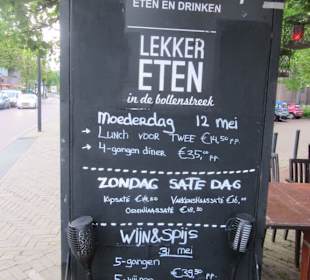 ETEN EN DRINKEN
LEKKER
ETEN
in de bollenstreek
Moederdag 12 mei
→ LUNCH VOOR TWEE €14,50 p.p.
→ 4-gangen diner €35,00 p.p.
ZONDAG SATE DAG
KIPSATÉ VARKENSHAASSATÉ
OSSENHAASSATÉ
WIJN&SPIJS
31 mei
5-gangen
5-wijnen €39,50 p.p.